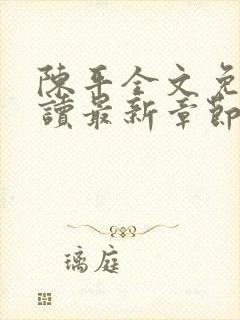 陳平全文免
讀最新章節
璃庭